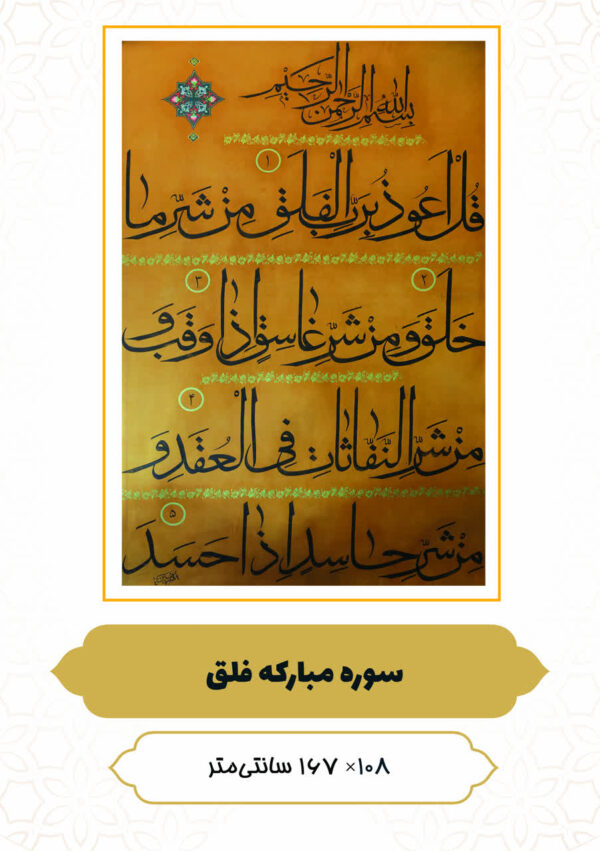 بسم الله الرحمن الرحیم
۱
قُلْ اَعُوذُ بِرَبِّ الْفَلَقِ مِنْ شَرِّ ما
۲ ۳
خَلَقَ وَ مِنْ شَرِّ غاسِقٍ اِذا وَقَبَ وَ
۴
مِنْ شَرِّ النَّفّاثاتِ فِی الْعُقَدِ وَ
۵
مِنْ شَرِّ حاسِدٍ اِذا حَسَدَ
سوره مبارکه فلق
۱۰۸× ۱۶۷ سانتی‌متر